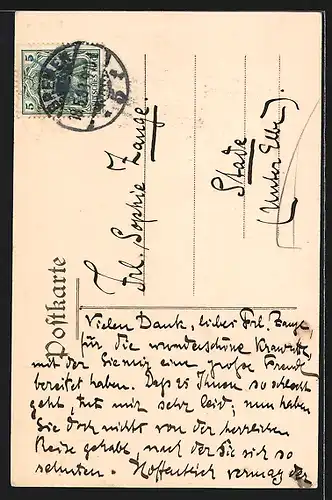 Postkarte
BREMEN
5 5
Frl. Sophie Zange.
Stade
(Unter Elbe).
Vielen Dank, liebes Frl. Zange,
für die wunderschöne Krawatte,
mit der Sie mir eine große Freude
bereitet haben. Daß es Ihnen so schlecht
geht, tut mir sehr leid; nun haben
Sie doch nicht von der herrlichen
Reise gehabt, nach der Sie sich so
sehnten. Hoffentlich vermag der